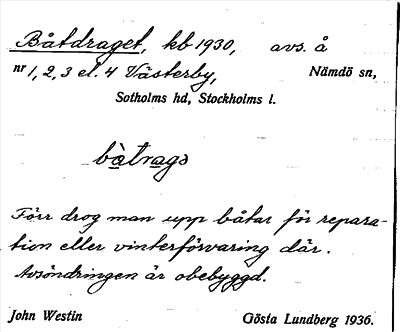 Båtdraget, kb 1930, avs. å
nr 1, 2, 3 el. 4 Västerby, Nämdö sn,
Sotholms hd, Stockholms l.
bàtragə
Förr drog man upp båtar för repara-
tion eller vinterförvaring där.
Avsöndringen är obebyggd.
John Westin Gösta Lundberg 1936.